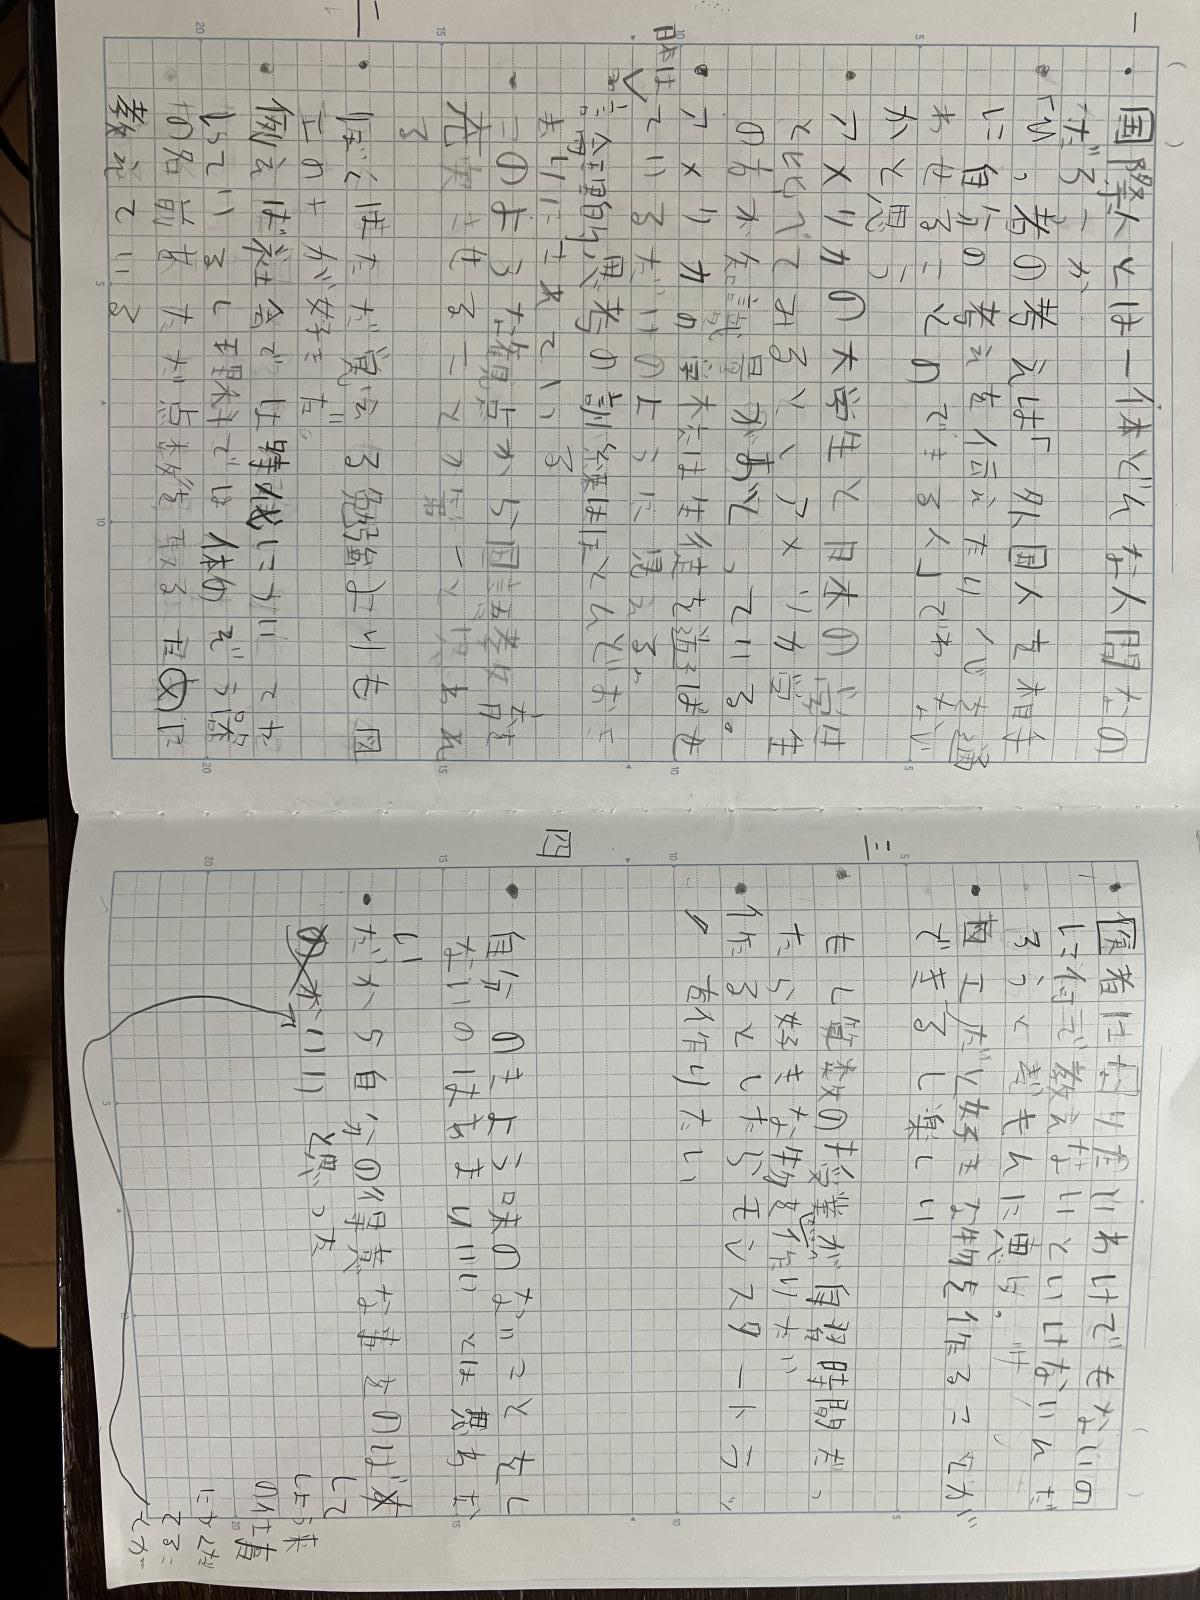 一
国際人とは一体どんな人間なの
だろうか
「ひっ者の考えは「外国人を相手
に自分の考えを伝えたり心を通
わせることのできる人」でわないか
かと思う
アメリカの大学生と日本の学生
と比べてみるとアメリカ学生
のちが知識量があとっている。
アメリカの学校は生徒を遊ばせ
ているだけのように見える。
日本は
論理的思考の訓練はほとんどおこ
まりにされている
このような観点から国語教育を
充実させることが第一と思われ
る
二
ぼくはただ覚える勉強よりも図
工の方が好きだ。
例えば社会では警察についてな
らっているし理科では体のぞう器
の名前をただ点数を取るために
教えている
三
僕者はなりたいわけでもないの
に何で数えないといけないんだ
ろうとぎもんに思う。
図工だと好きな物を作ることが
できるし楽しい
もし算数の授業が自習時間だっ
たら好きな物を作りたい
作るとしたらモンスタートラッ
クを作りたい
四
自分のきょう味のないことをし
ないのはあまりいいとは思わな
い
だから自分の得意な事をのばす
のがいい
と思った
して
しょう来
の仕事
にやくだ
てるこ
とが